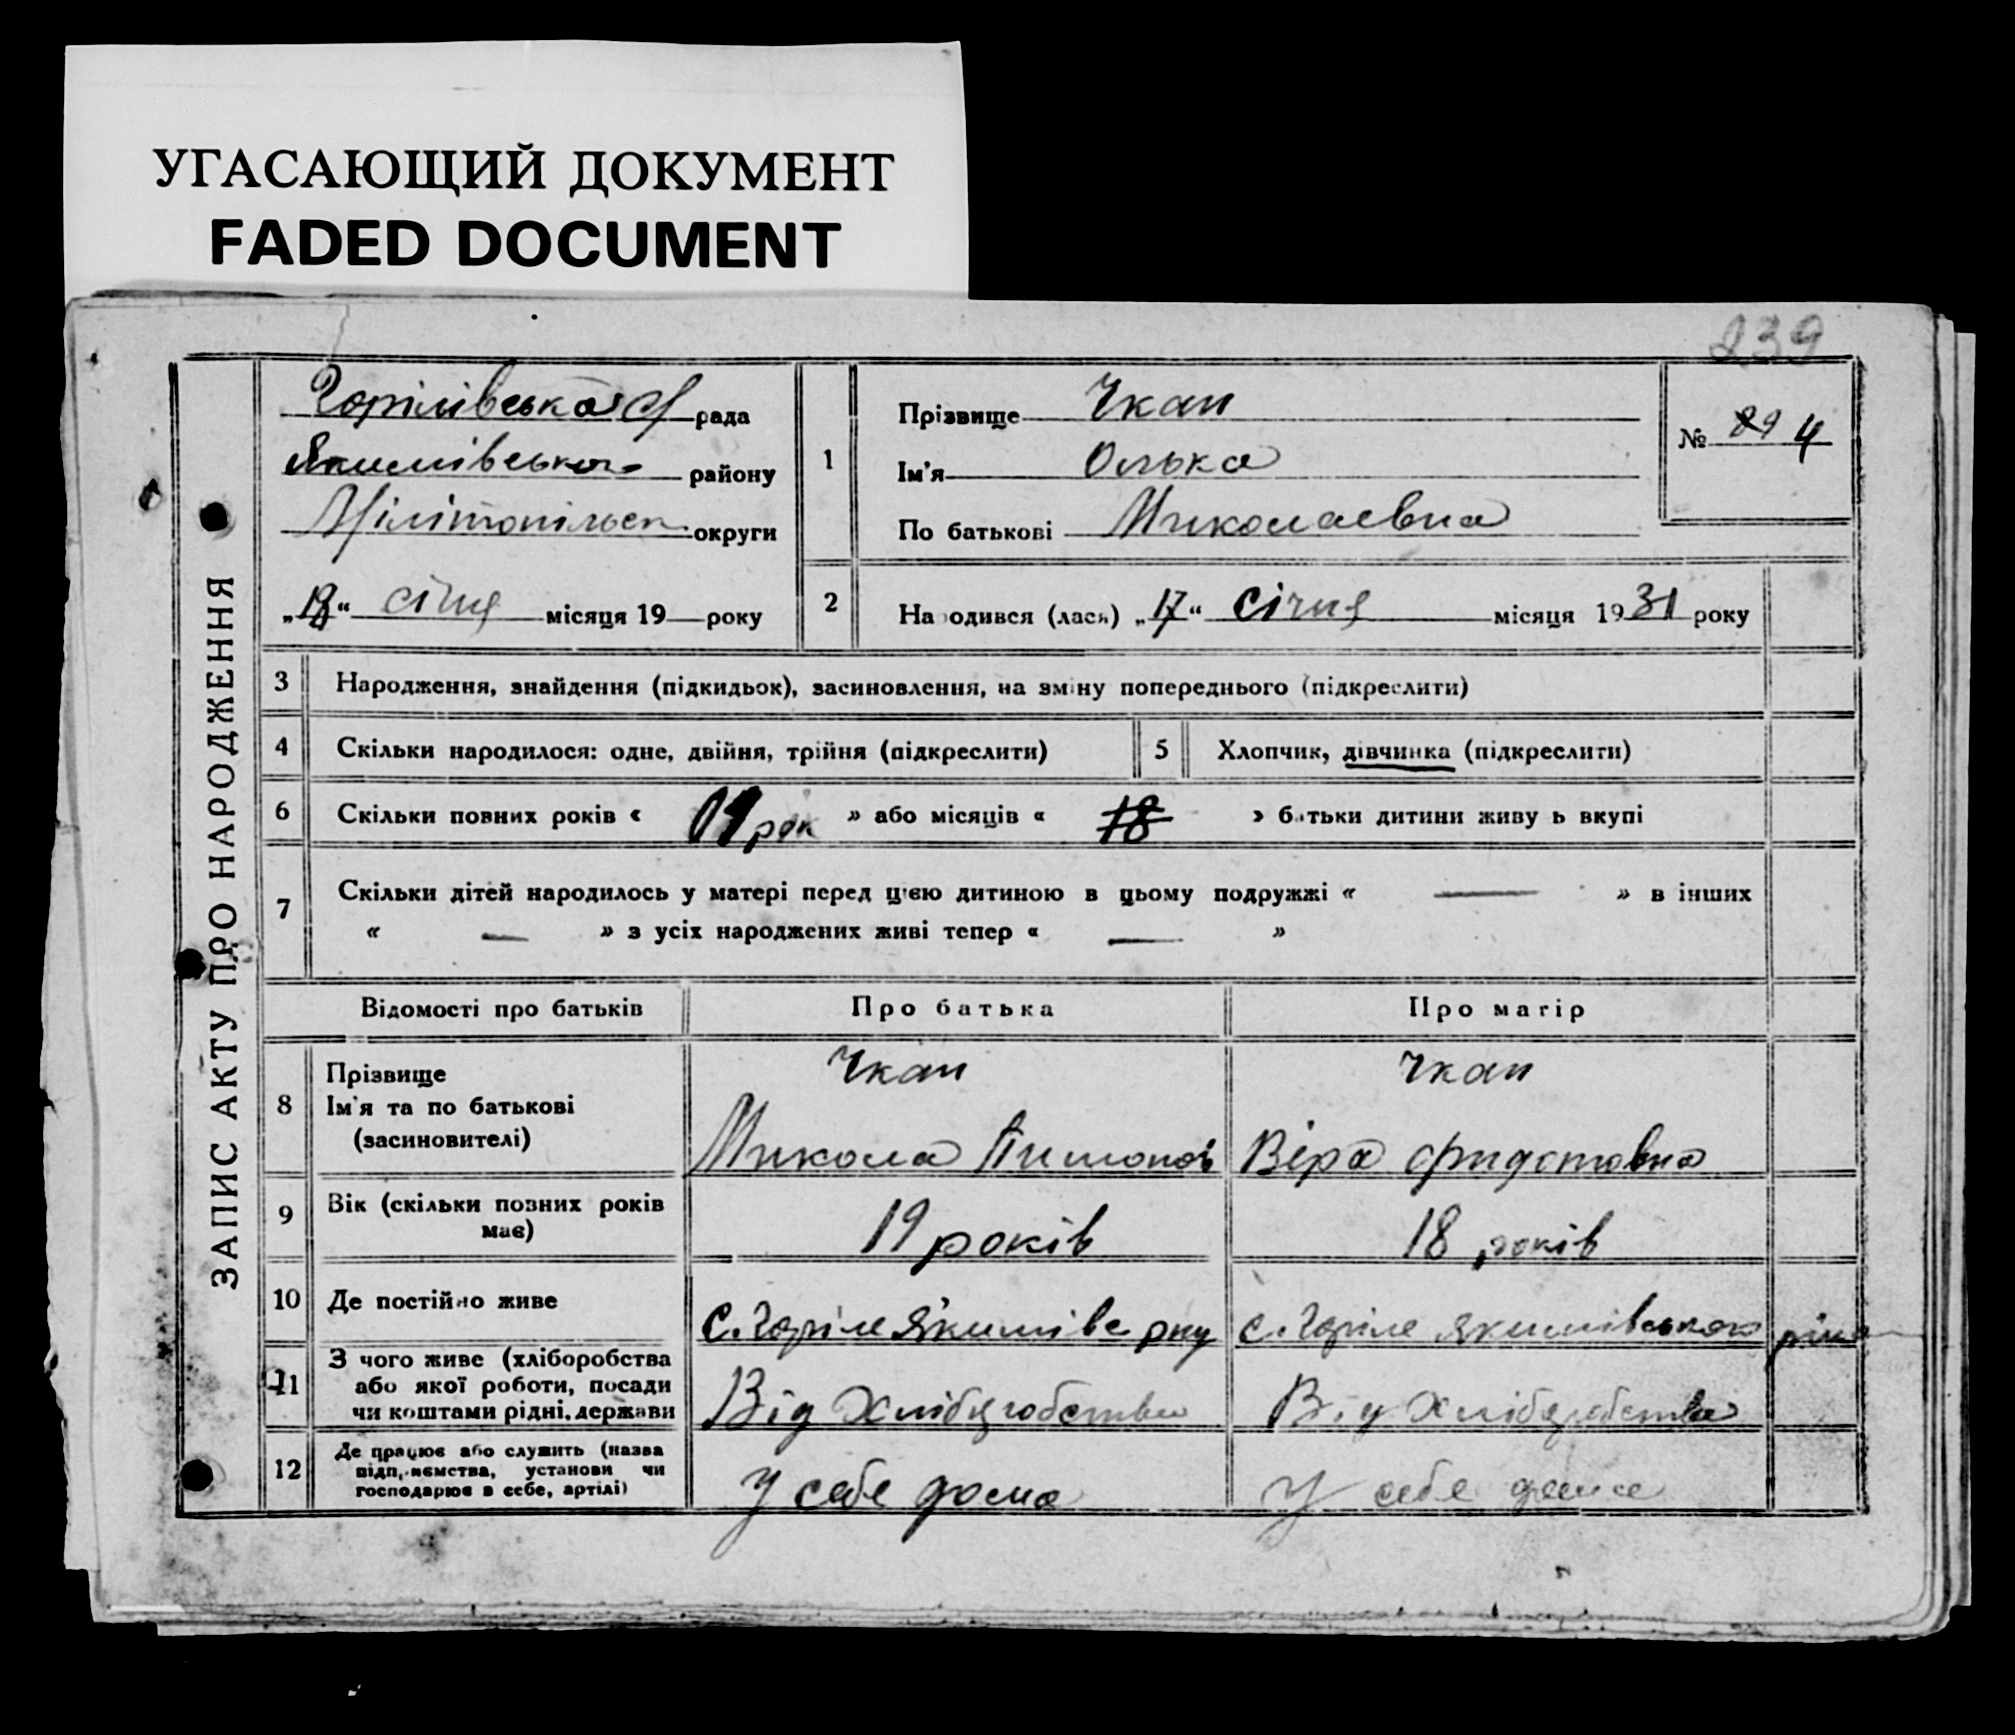 УГАСАЮЩИЙ ДОКУМЕНТ
FADED DOCUMENT
239
ЗАПИС АКТУ ПРО НАРОДЖЕННЯ
Горілівська с/ рада
Якимівського району
Мілітопільск округи
„18“ січня місяця 19 року
1
Прізвище Чкан
Ім'я Олька
По батькові Миколаевна
№ 4
2
Народився (лася) „17“ січня місяця 1931 року
3 Народження, знайдення (підкидьок), засиновлення, на зміну попереднього (підкреслити)
4 Скільки народилося: одне, двійня, трійня (підкреслити)
5 Хлопчик, дівчинка (підкреслити)
6 Скільки повних років « 1 рок » або місяців « 18 » батьки дитини живуть вкупі
7 Скільки дітей народилось у матері перед цією дитиною в цьому подружжі « — » в інших
« — » з усіх народжених живі тепер « — »
Відомості про батьків Про батька Про матір
8 Прізвище
Ім'я та по батькові
(засиновителі)
Чкан
Микола
Чкан
Віра
9 Вік (скільки повних років
має)
19 років
18 років
10 Де постійно живе
с. Горіле Якимівс рну
с. Горіле Якимівського
11 З чого живе (хліборобства
або якої роботи, посади
чи коштами рідні, держави
Від Хліборобства
Від Хліборобства
12 Де працює або служить (назва
підприємства, установи чи
господарює в себе, артілі)
У себе дома
У себе дома